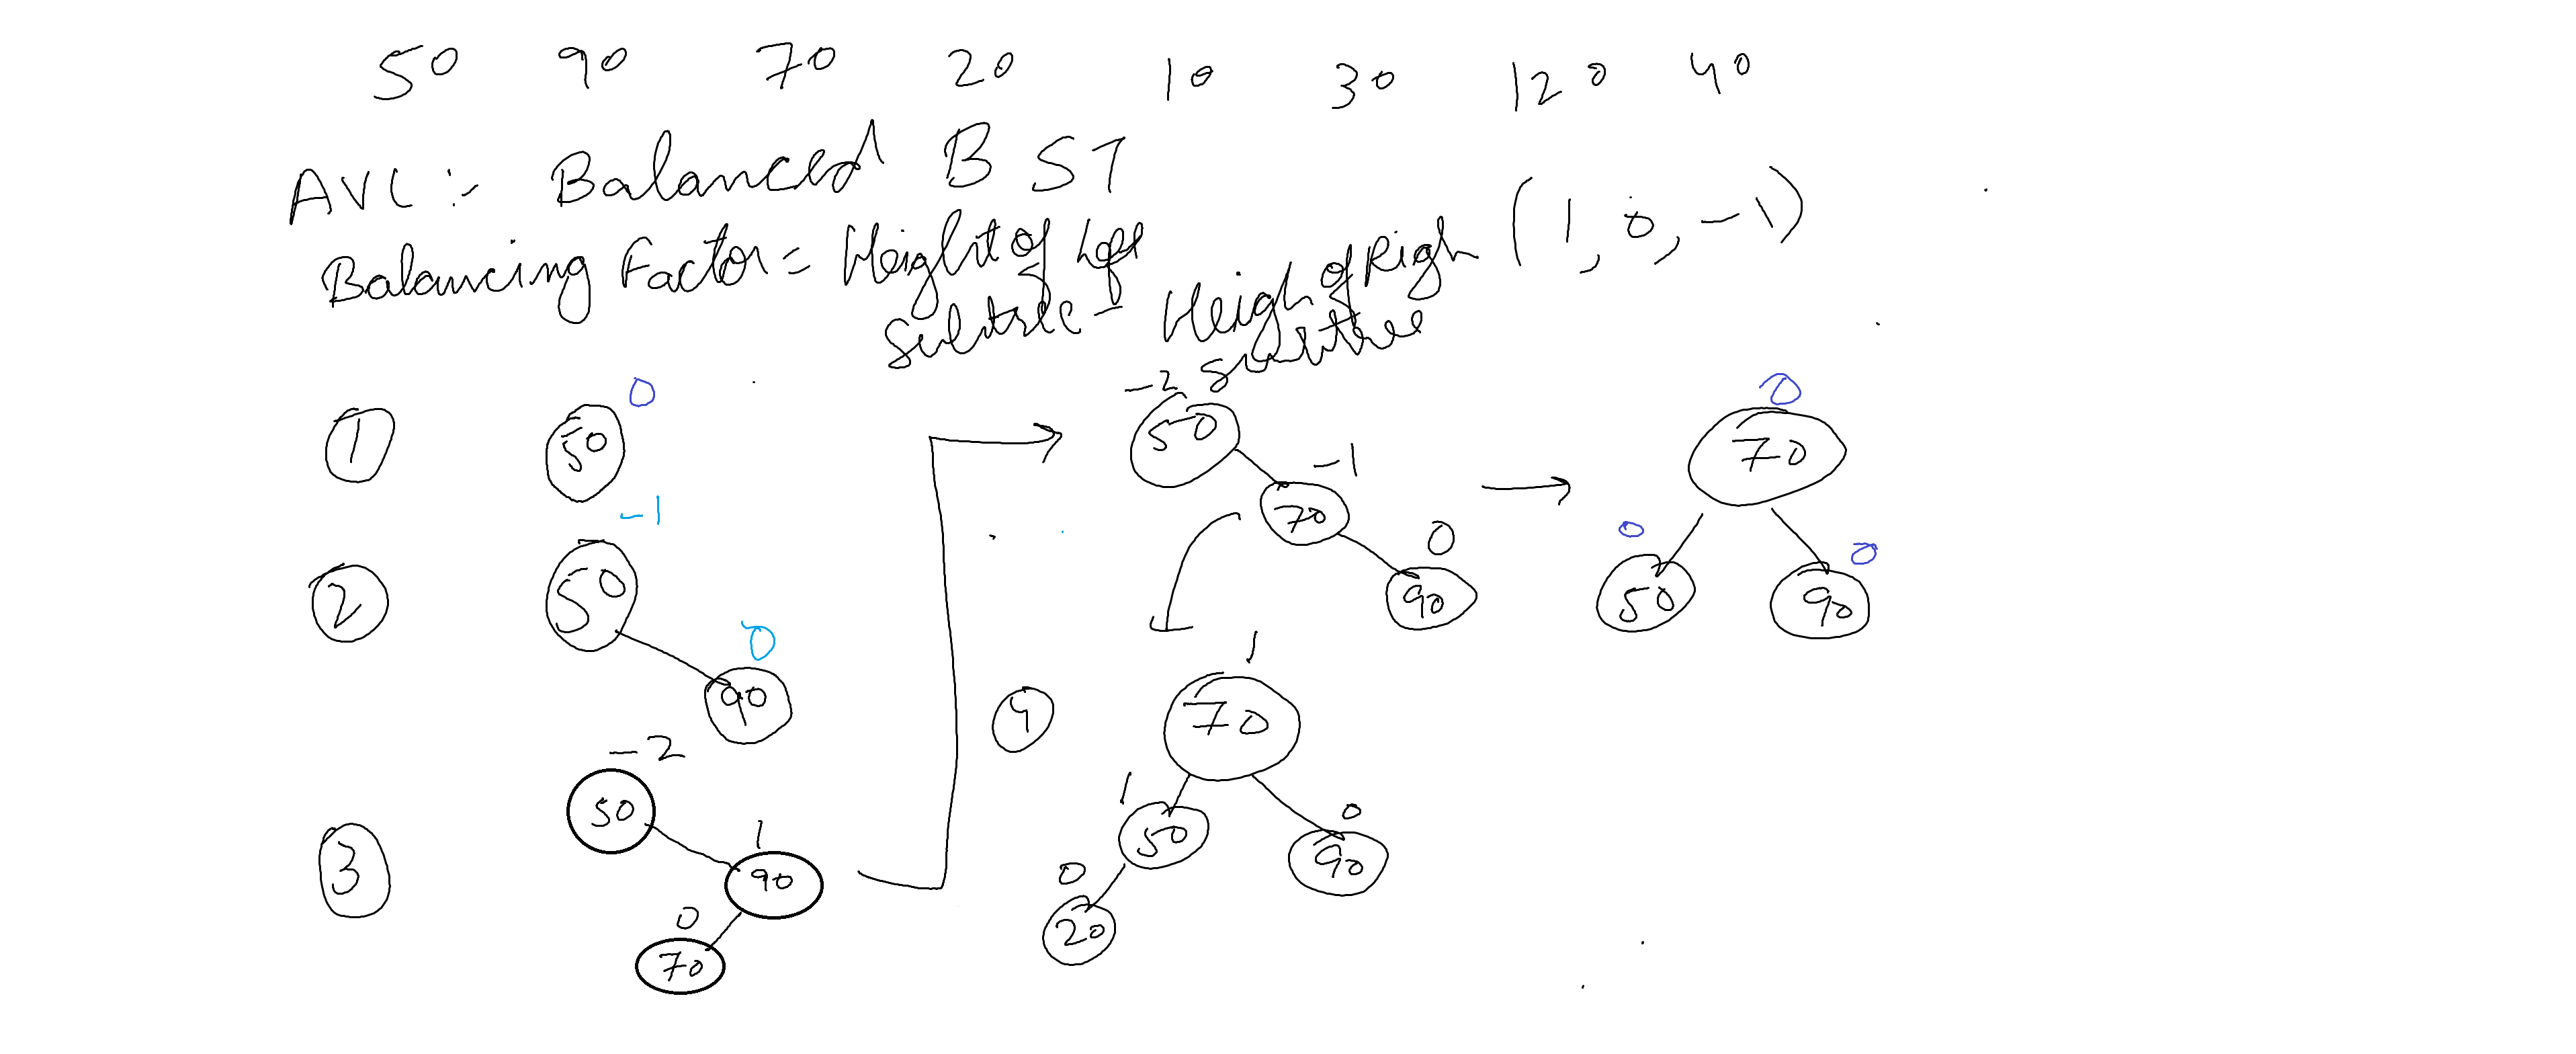 50 90 70 20 10 30 120 40
AVL :- Balanced BST
Balancing Factor = Height of Left (1, 0, -1)
Subtree - Heigh of Righ
subtree
1 50 0
-2 50 -1 70 0 90
0 70 0 50 0 90
2 -1 50 0 90
3 -2 50 1 90 0 70
4 1 70 1 50 0 90 0 20